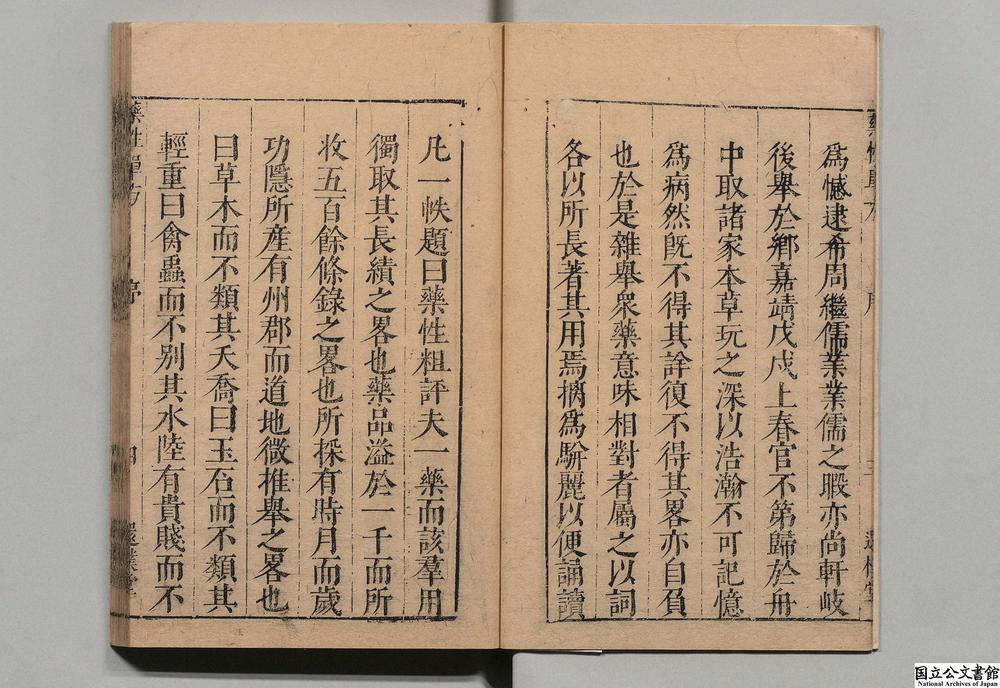 為憾逮希周繼儒業業儒之暇亦尚軒岐
後舉於鄉嘉靖戊戌上春官不第歸於舟
中取諸家本草玩之深以浩瀚不可記憶
為病然旣不得其詳復不得其畧亦自負
也於是雜舉衆藥意味相對者屬之以詞
各以所長著其用焉摛為駢麗以便誦讀
凡一帙題曰藥性粗評夫一藥而該羣用
獨取其長績之畧也藥品溢於一千而所
收五百餘條錄之畧也所採有時月而歲
功隱所產有州郡而道地微推舉之畧也
曰草木而不類其夭喬曰玉石而不類其
輕重曰禽蟲而不别其水陸有貴賤而不
藥性 序 四
国立公文書館
National Archives of Japan